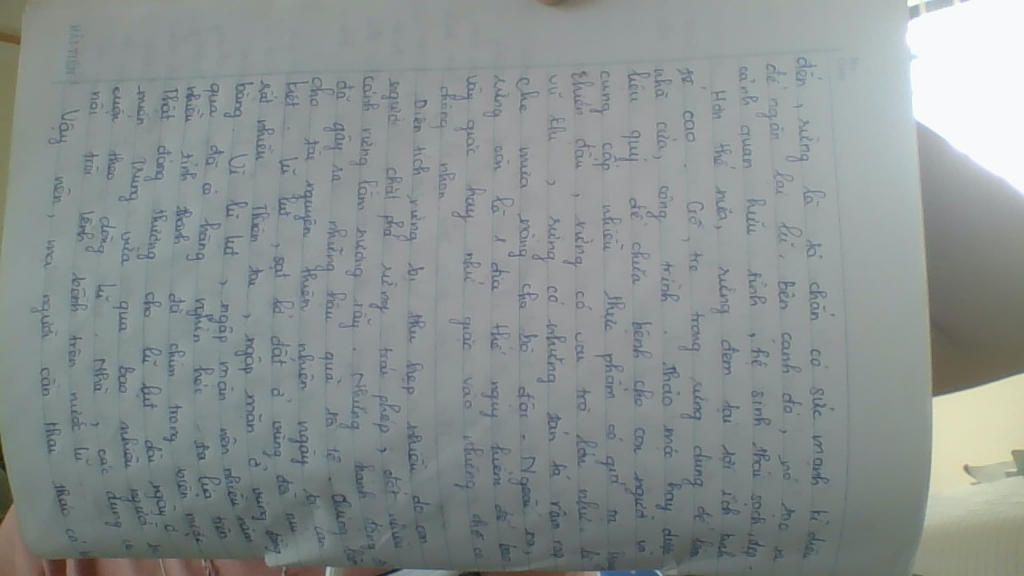 đến, rừng là tá chắn có sức mạnh kì diệu
để ngăn lại lũ, bên cạnh đó, nó tạo ra
cảnh quan hữu tình, hệ sinh thái sạch, đẹp.
Hơn thế nữa, rừng đem lại lợi ích kinh
tế cao. Gỗ, tre trong rừng dùng để làm
nhà cửa, công trình. Thảo mộc hay dược
liệu quý để chữa bệnh cho con người và
cung cấp nhiều thực phẩm có giá
chiến đấu, rừng có vai trò lớn như
vũ khí, rừng có những tán lá rậm rạp
che mưa nắng cho bộ đội. Ngoài ra,
rừng còn là 1 địa thế nguy hiểm để
vây quân hay nhử giặc vào những
chông nhọn.
Diện tích rừng bị thu hẹp nhiều do con
người chặt phá rừng trái phép, đốt
cánh rừng làm nương rẫy. Những hành động
đó gây ra những hậu quả to lớn.
cho tài nguyên thiên nhiên ngày bị cạn
kiệt. Lũ lụt, sạt lở đất ở vùng
rất nhiều. Thiên tai, ngập mặn ở vùng
bằng. Vì lũ lụt, ngập mặn nên nhiều năm
qua đã có hàng nghìn héc ta lúa
nhiều tỉnh thành đã chìm trong
Thật đáng thương cho lũ lụt dài ngày ở
miền Trung vừa qua bao nhiêu người
cuốn theo dòng lũ. Nhà, vật dụng
nổi trôi lênh bênh trên nước lũ.
Vậy nên, mọi người cần phải thức
HẢI TIẾN